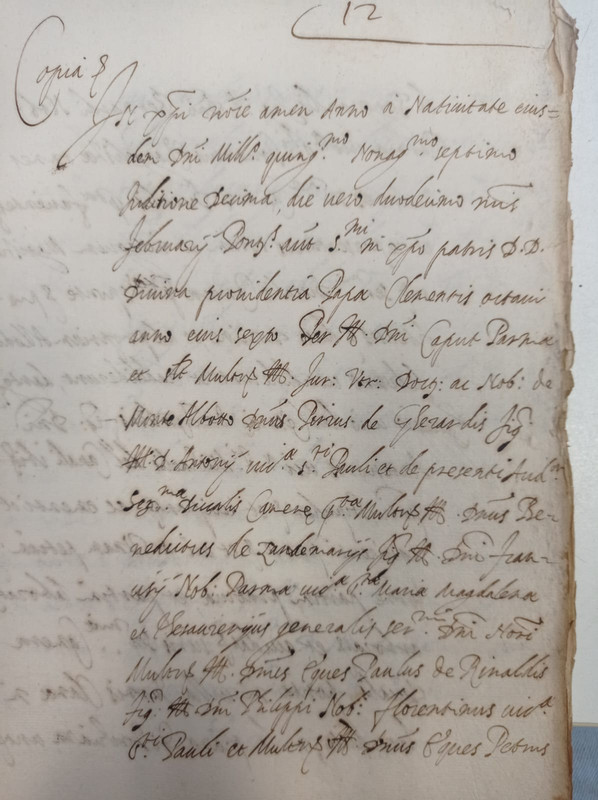 12
Copia &
In xpi noie amen Anno a Nativitate eius=
dem Dni Mill.o quing.mo Nonag.mo septimo
Inditione Decima, die vero duodecimo mis
februarij Pont.s aut s.mi in xpo patris D.D.
Divina providentia Papa Clementis octavi
anno eius sexto Per Ill. Dni Caput Parma
et Multor Ill. Jur: Utr: Doct: ac Nob: de
Monte Albotto Dnus Pirius de Gherardis fig.
Ill. D. Antonij vic.a s.ti Pauli et de presenti Aud.or
Ser.ma Ducalis Camere Multor Ill. Dnus Be-
nedictus de Zandemarijs fig. Ill. Dni fran-
cisci Nob: Parma vic.a Maria Magdalena
et Thesaurerijus generalis ser.mi Dni Nori
Multor Ill. Dnus Eques Paulus de Rinaldis
fig. Ill. Dni Philippi Nob: florentinus vic.a
s.ti Pauli et Multor Ill. Dnus Eques Petrus